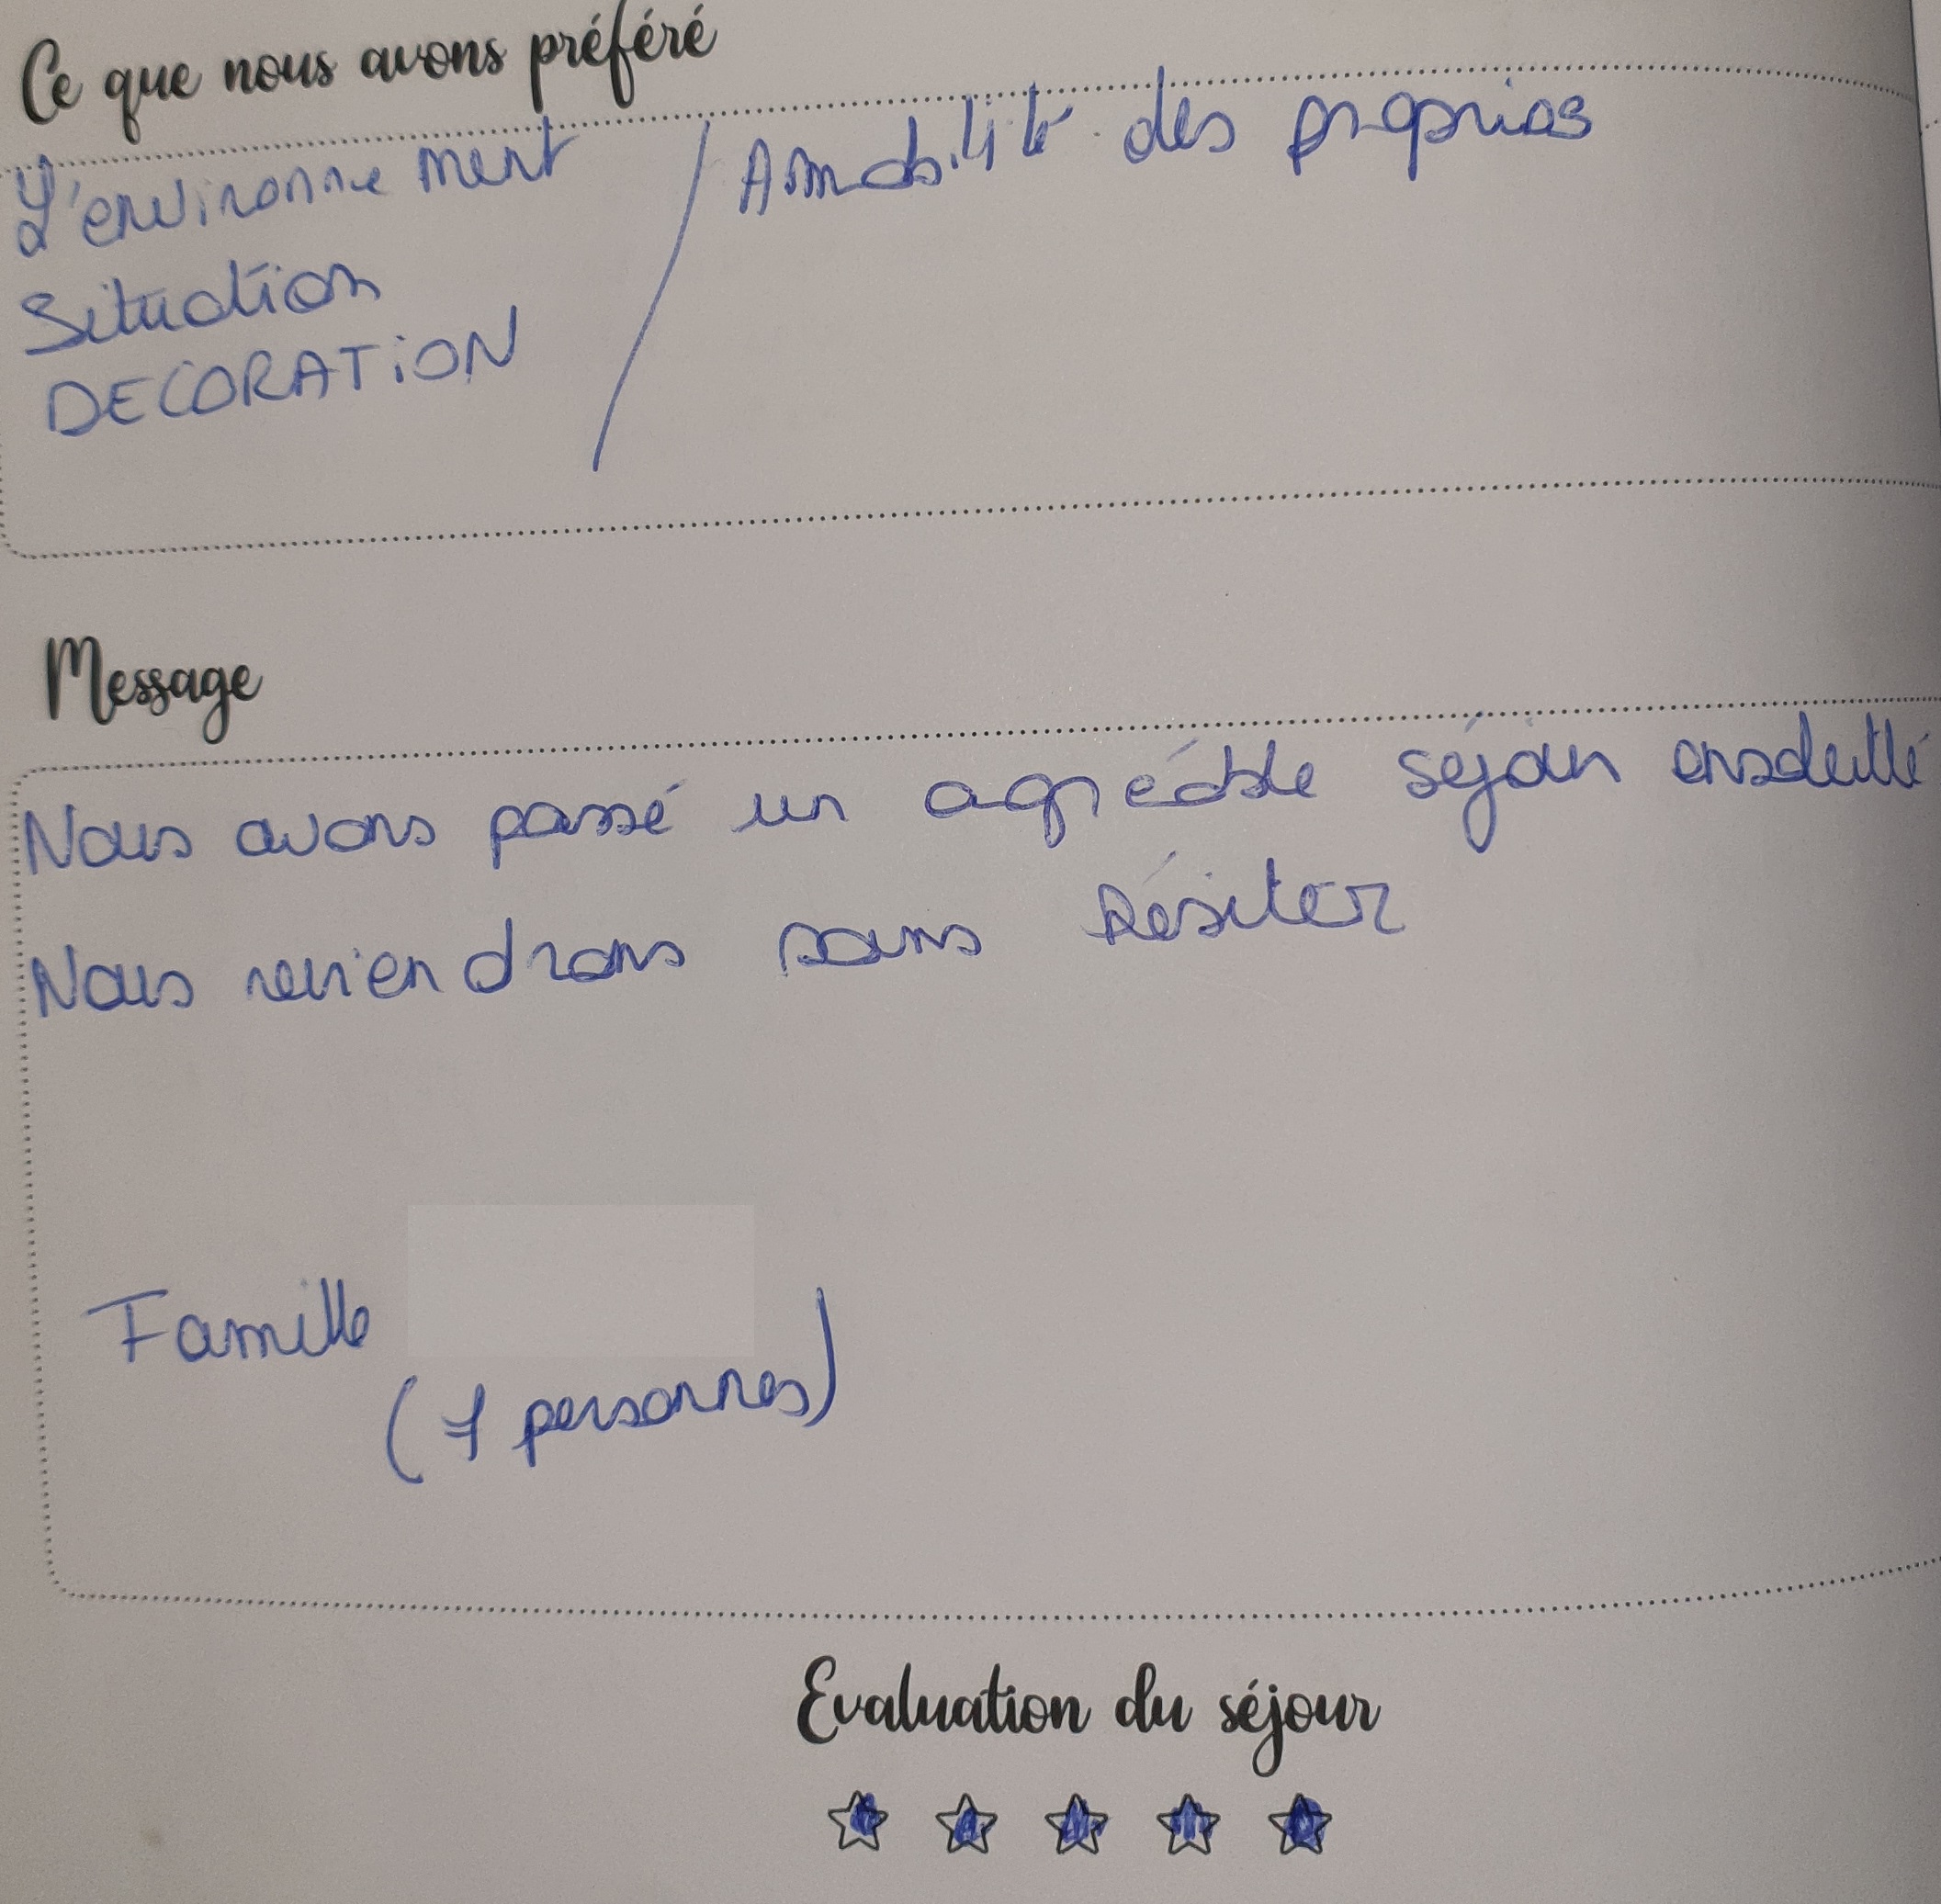 Ce que nous avons préféré
L'environnement / Amabilité des proprios
Situation
DECORATION
Message
Nous avons passé un agréable séjour ensoleillé
Nous reviendrons sans hésiter
Famille
(7 personnes)
Evaluation du séjour